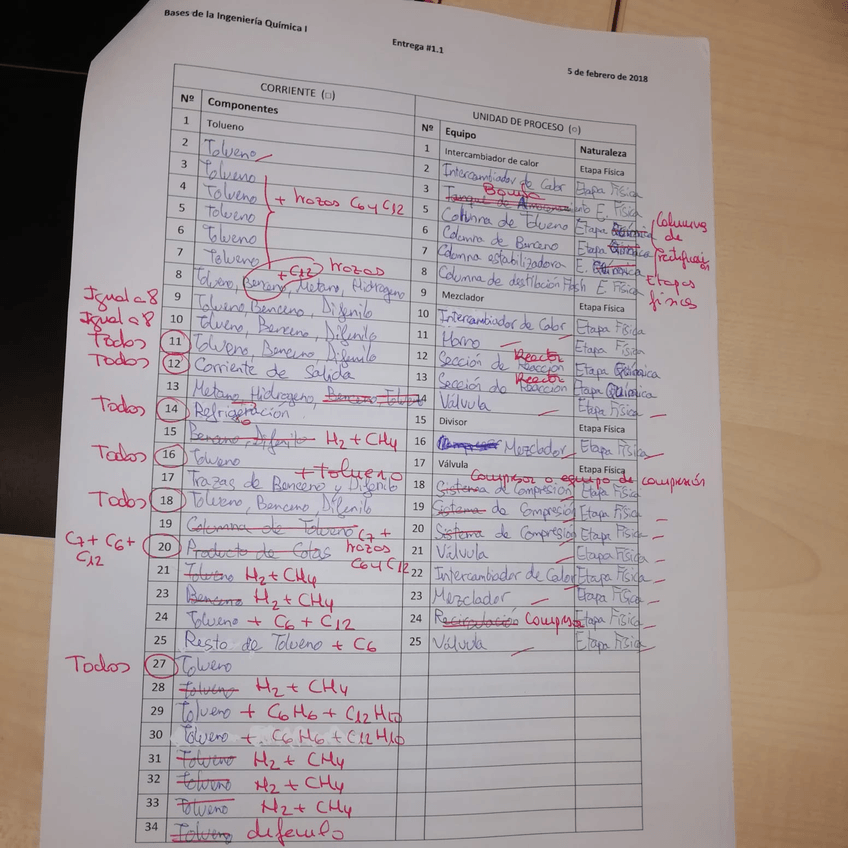 Bases de la Ingeniería Química I
Entrega #1.1
5 de febrero de 2018
CORRIENTE (□)
Nº Componentes
1 Tolueno
2 Tolueno
3 Tolueno
4 Tolueno + trazas C6 y C12
5 Tolueno
6 Tolueno
7 Tolueno
+ C12 trazas
8 Tolueno, Benceno, Metano, Hidrogeno
Igual a 8 9 Tolueno, Benceno, Difenilo
Igual a 8 10 Tolueno, Benceno, Difenilo
Todos 11 Tolueno, Benceno, Difenilo
Todos 12 Corriente de Salida
13 Metano, Hidrogeno, Benceno
Todos 14 Refrigeración
15 Benceno, Difenilo H2 + CH4
Todos 16 Tolueno
+ Tolueno
17 Trazas de Benceno y Difenilo
Todos 18 Tolueno, Benceno, Difenilo
19 Columna de Tolueno C7 + trazas C6 y C12
C7 + C6 + C12 20 Producto de Colas
21 Tolueno H2 + CH4
23 Benceno H2 + CH4
24 Tolueno + C6 + C12
25 Resto de Tolueno + C6
Todos 27 Tolueno
28 Tolueno H2 + CH4
29 Tolueno + C6H6 + C12H10
30 Tolueno + C6H6 + C12H10
31 Tolueno H2 + CH4
32 Tolueno H2 + CH4
33 Tolueno H2 + CH4
34 Tolueno difenilo
UNIDAD DE PROCESO (○)
Nº Equipo Naturaleza
1 Intercambiador de calor Etapa Física
2 Intercambiador de Calor Etapa Física
Bomba
3 Tanque de Almacenamiento E. Física
5 Columna de Tolueno Etapa Química
6 Columna de Benceno Etapa Química
7 Columna estabilizadora E. Química
8 Columna de destilación Flash E. Física
Columna de rectificación
Etapas físicas
9 Mezclador Etapa Física
10 Intercambiador de Calor Etapa Física
11 Horno Etapa Física
Reactor
12 Sección de Reacción Etapa Química
Reactor
13 Sección de Reacción Etapa Química
14 Válvula Etapa Física
15 Divisor Etapa Física
16 Compresor Mezclador Etapa Física
17 Válvula Etapa Física
Compresor o equipo de compresión
18 Sistema de Compresión Etapa Física
19 Sistema de Compresión Etapa Física
20 Sistema de Compresión Etapa Física
21 Válvula Etapa Física
22 Intercambiador de Calor Etapa Física
23 Mezclador Etapa Física
24 Recirculación Compresor Etapa Física
25 Válvula Etapa Física